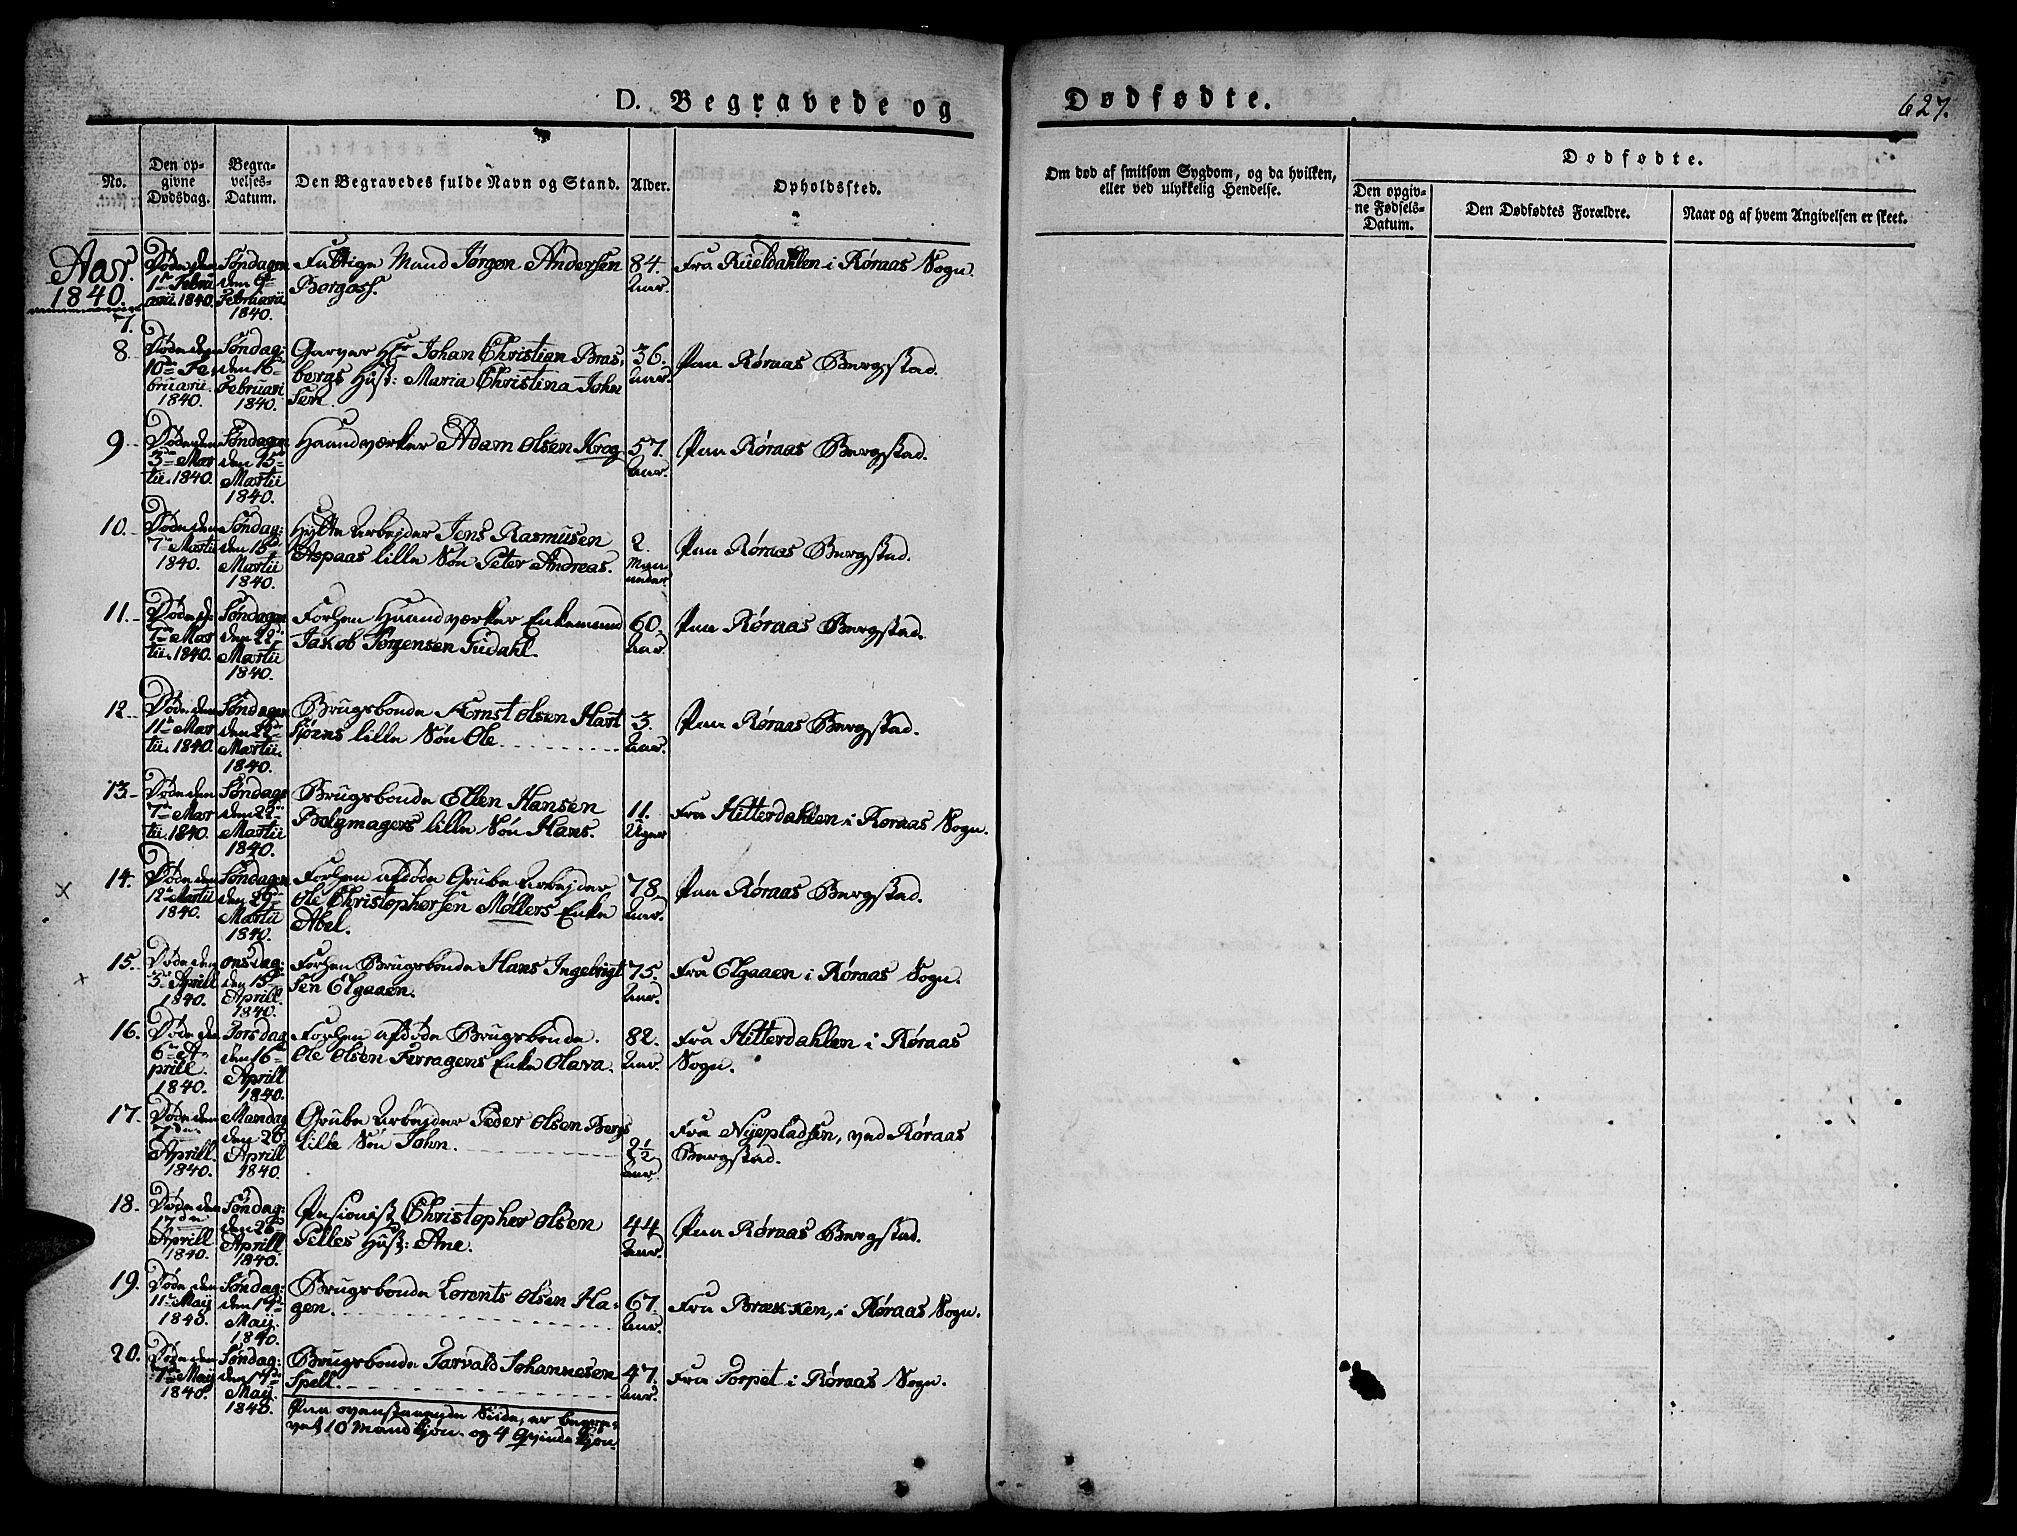 D. Begravede og
Dødfødte.
627.
No.
Den opgivne Dødsdag.
Begravelses-Datum.
Den Begravedes fulde Navn og Stand.
Alder.
Opholdssted.
Om død af smitsom Sygdom, og da hvilken, eller ved ulykkelig Hendelse.
Dødfødte.
Den opgivne Fødsels-Datum.
Den Dødfødtes Forældre.
Naar og af hvem Angivelsen er skeet.
Aar.
1840.
7.
Døde den 1ste Februarii. 1840.
Søndagen den 9de Februarii 1840.
Fattige Mand Jørgen Andersen
Borgos.
84. Aar.
Fra Rueldahlen i Røraas Sogn.
8.
Døde den 10de Februarii. 1840.
Søndag: den 16de Februari 1840.
Garver Hr Johan Christian Bras-
bergs Hust: Maria Christina John
sen.
36. Aar.
Paa Røraas Bergstad.
9.
Døde den 3de Martii. 1840.
Søndagen den 15de Martii 1840.
Haandværker Adam Olsen Krog
57. Aar.
Paa Røraas Bergstad.
10.
Døde den 7de Martii 1840.
Søndag: den 15de Martii 1840.
Hytte Arbejder Jens Rasmusen
Aspaas lille Søn Peter Andreas.
2. Maaneder
Paa Røraas Bergstad.
11.
Døde d: 7de Martii. 1840.
Søndagen den 22de Martii 1840.
Forhen Haandværker Enkemand
Jakob Jørgensen Gudahl.
60. Aar.
Paa Røraas Bergstad.
12.
Døde den 11te Martii. 1840.
Søndagen den 22de Martii. 1840.
Brugsbonde Ærnst Olsen Hart
sjøens lille Søn Ole
3. Aar.
Paa Røraas Bergstad.
13.
Døde den 7de Martii. 1840.
Søndag: den 22de Martii 1840.
Brugsbonde Elten Hansen
Bælgmagers lille Søn Hans.
11. Uger
Fra Hitterdahlen i Røraas Sogn.
14.
Døde den 12te Martii 1840.
Søndagen den 29de Martii 1840.
Forhen afdøde Grube Arbejder
Ole Christophersen Møllers Enke
Abel.
78. Aar.
Paa Røraas Bergstad.
15.
Døde den 3de Aprill 1840.
Onsdag: den 15de Aprill. 1840.
Forhen Brugsbonde Hans Ingebrigt
sen Elgaaen.
75. Aar.
Fra Elgaaen i Røraas Sogn.
16.
Døde den 6te Aprill. 1840.
Torsdag den 16de Aprill 1840.
Forhen afdøde Brugsbonde.
Ole Olsen Ferragens Enke Olava.
82. Aar.
Fra Hitterdahlen i Røraas
Sogn.
17.
Døde den 7de Aprill. 1840.
Mandag den 20 Aprill 1840.
Grube Arbejder Peder Olsen Bergs
lille Søn John.
2½ Aar
Fra Nyepladsen, ved Røraas
Bergstad.
18.
Døde den 17de Aprill 1840.
Søndag: den 26de Aprill 1840.
Pensionist Christopher Olsen
Gelles Hust: Ane.
44 Aar.
Paa Røraas Bergstad.
19.
Døde den 11te Maij 1840.
Søndag: den 17de Maij. 1840.
Brugsbonde Lorents Olsen Ha-
gen.
67. Aar.
Fra Brækken, i Røraas Sogn.
20.
Døde den 7de Maij 1840.
Søndag: den 17de Maij. 1840.
Brugsbonde Tarvald Johannesen
Spell.
47. Aar.
Fra Torpet i Røraas Sogn.
Paa ovenstaaende Side, er begra-
vet 10 Mandkjøn. og 4 Qvindekjøn